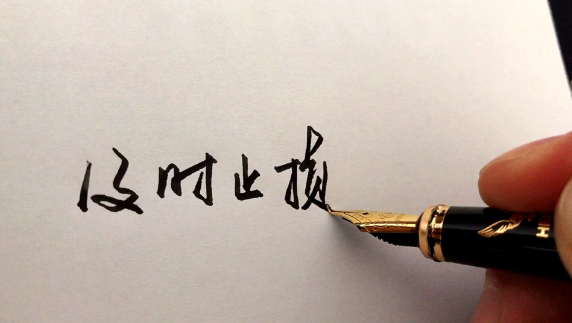 及时止损
H